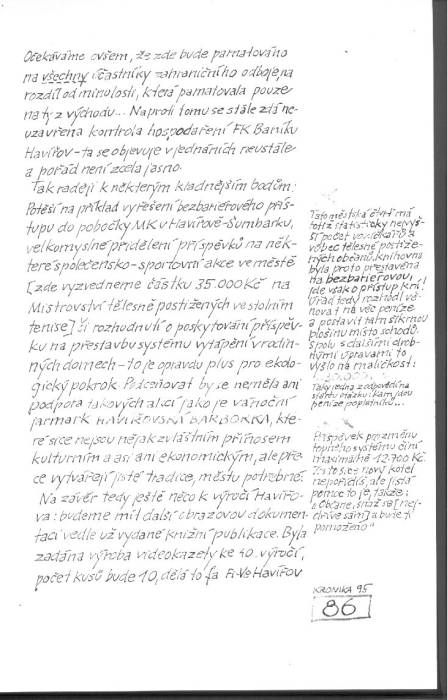 Očekáváme ovšem, že zde bude pamatováno
na všechny účastníky zahraničního odboje, na
rozdíl od minulosti, která pamatovala pouze
na ty z východu... Naproti tomu se stále zdá ne-
uzavřena kontrola hospodaření FK Baníku
Havířov - ta se objevuje v jednáních neustále
a pořád není zcela jasno.
Tak raději k některým kladnějším bodům:
Potěší na příklad vyřešení bezbariérového přís-
tupu do pobočky MK v Havířově-Šumbarku,
velkomyslné přidělení příspěvků na něk-
teré společensko-sportovní akce ve městě
[zde vyzvedneme částku 35.000 Kč na
Mistrovství tělesně postižených ve stolním
tenise] či rozhodnutí o poskytování příspěv-
ku na přestavbu systému vytápění v rodin-
ných domech - to je opravdu plus pro ekolo-
gický pokrok. Podceňovat by se neměla ani
podpora takových akcí jako je vánoční
jarmark HAVÍŘOVSKÁ BARBORKA, kte-
ré sice nejsou nějak zvláštním přínosem
kulturním a asi ani ekonomickým, ale pře-
ce vytvářejí jisté tradice, městu potřebné.
Na závěr tedy ještě něco k výročí Havířo-
va: budeme mít další obrazovou dokumen-
taci vedle už vydané knižní publikace. Byla
zadána výroba videokazety ke 40. výročí,
počet kusů bude 10, dělá to fa Fi-Vo Havířov
Tato městská část má
totiž statisticky nejvyš-
ší počet vozíčkářů a
vůbec tělesně postiže-
ných občanů, knihovna
byla proto přestavěna
na bezbariérovou,
jde však o přístup k ní.
Úřad tedy rozhodl vě-
novat na věc peníze
a postavit tam šikmou
plošinu místo schodů.
Spolu s dalšími drob-
nými úpravami to
vyšlo na maličkost:
Taky jedna z odpovědí na
otázku: kam jdou
peníze poplatníků...
Příspěvek pro změnu
topného systému činí
maximálně 12.700 Kč.
za to si nový kotel
nepořídíš, ale jistá
pomoc to je, takže:
"Občane, snaž se [nej-
dříve sám] a bude ti
pomoženo"
KRONIKA 95
86